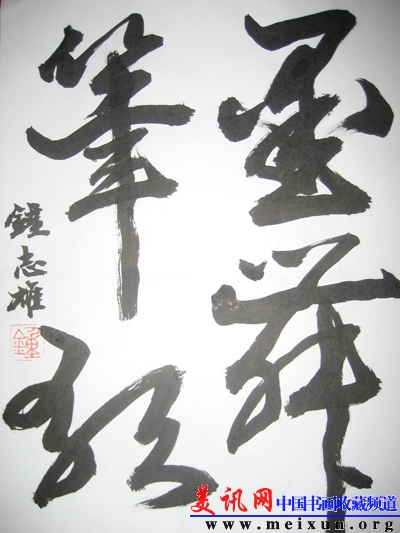 墨舞
筆歌
鍾志雄
鍾
美讯网 中国书画收藏频道
www.meixun.org